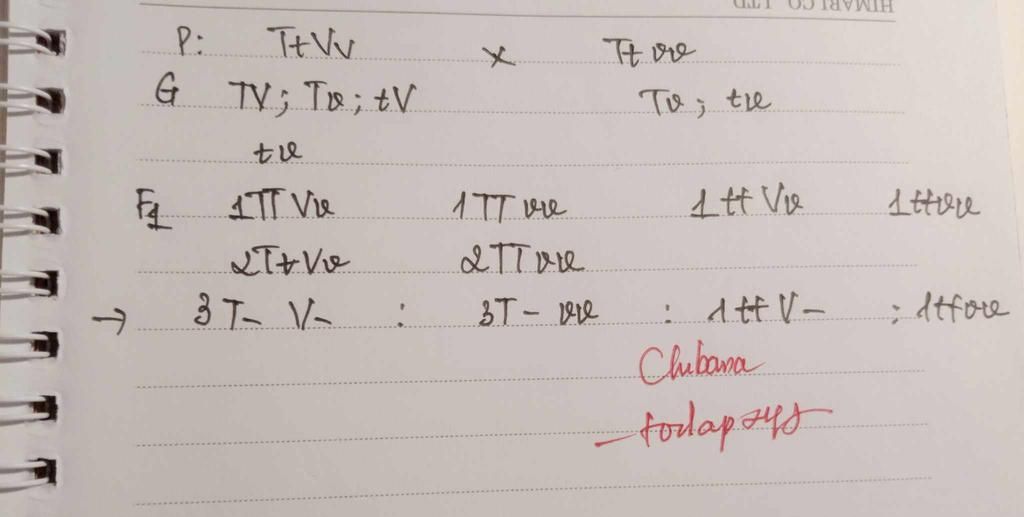 HIMARI CO. LTD
P: TtVv x Tt vv
G TV; Tv; tV Tv; tv
tv
F1 1TT Vv 1TT vv 1 tt Vv 1ttvv
2TtVv 2TT vv
→ 3 T- V- : 3T- vv : 1 tt V- : 1ttvv